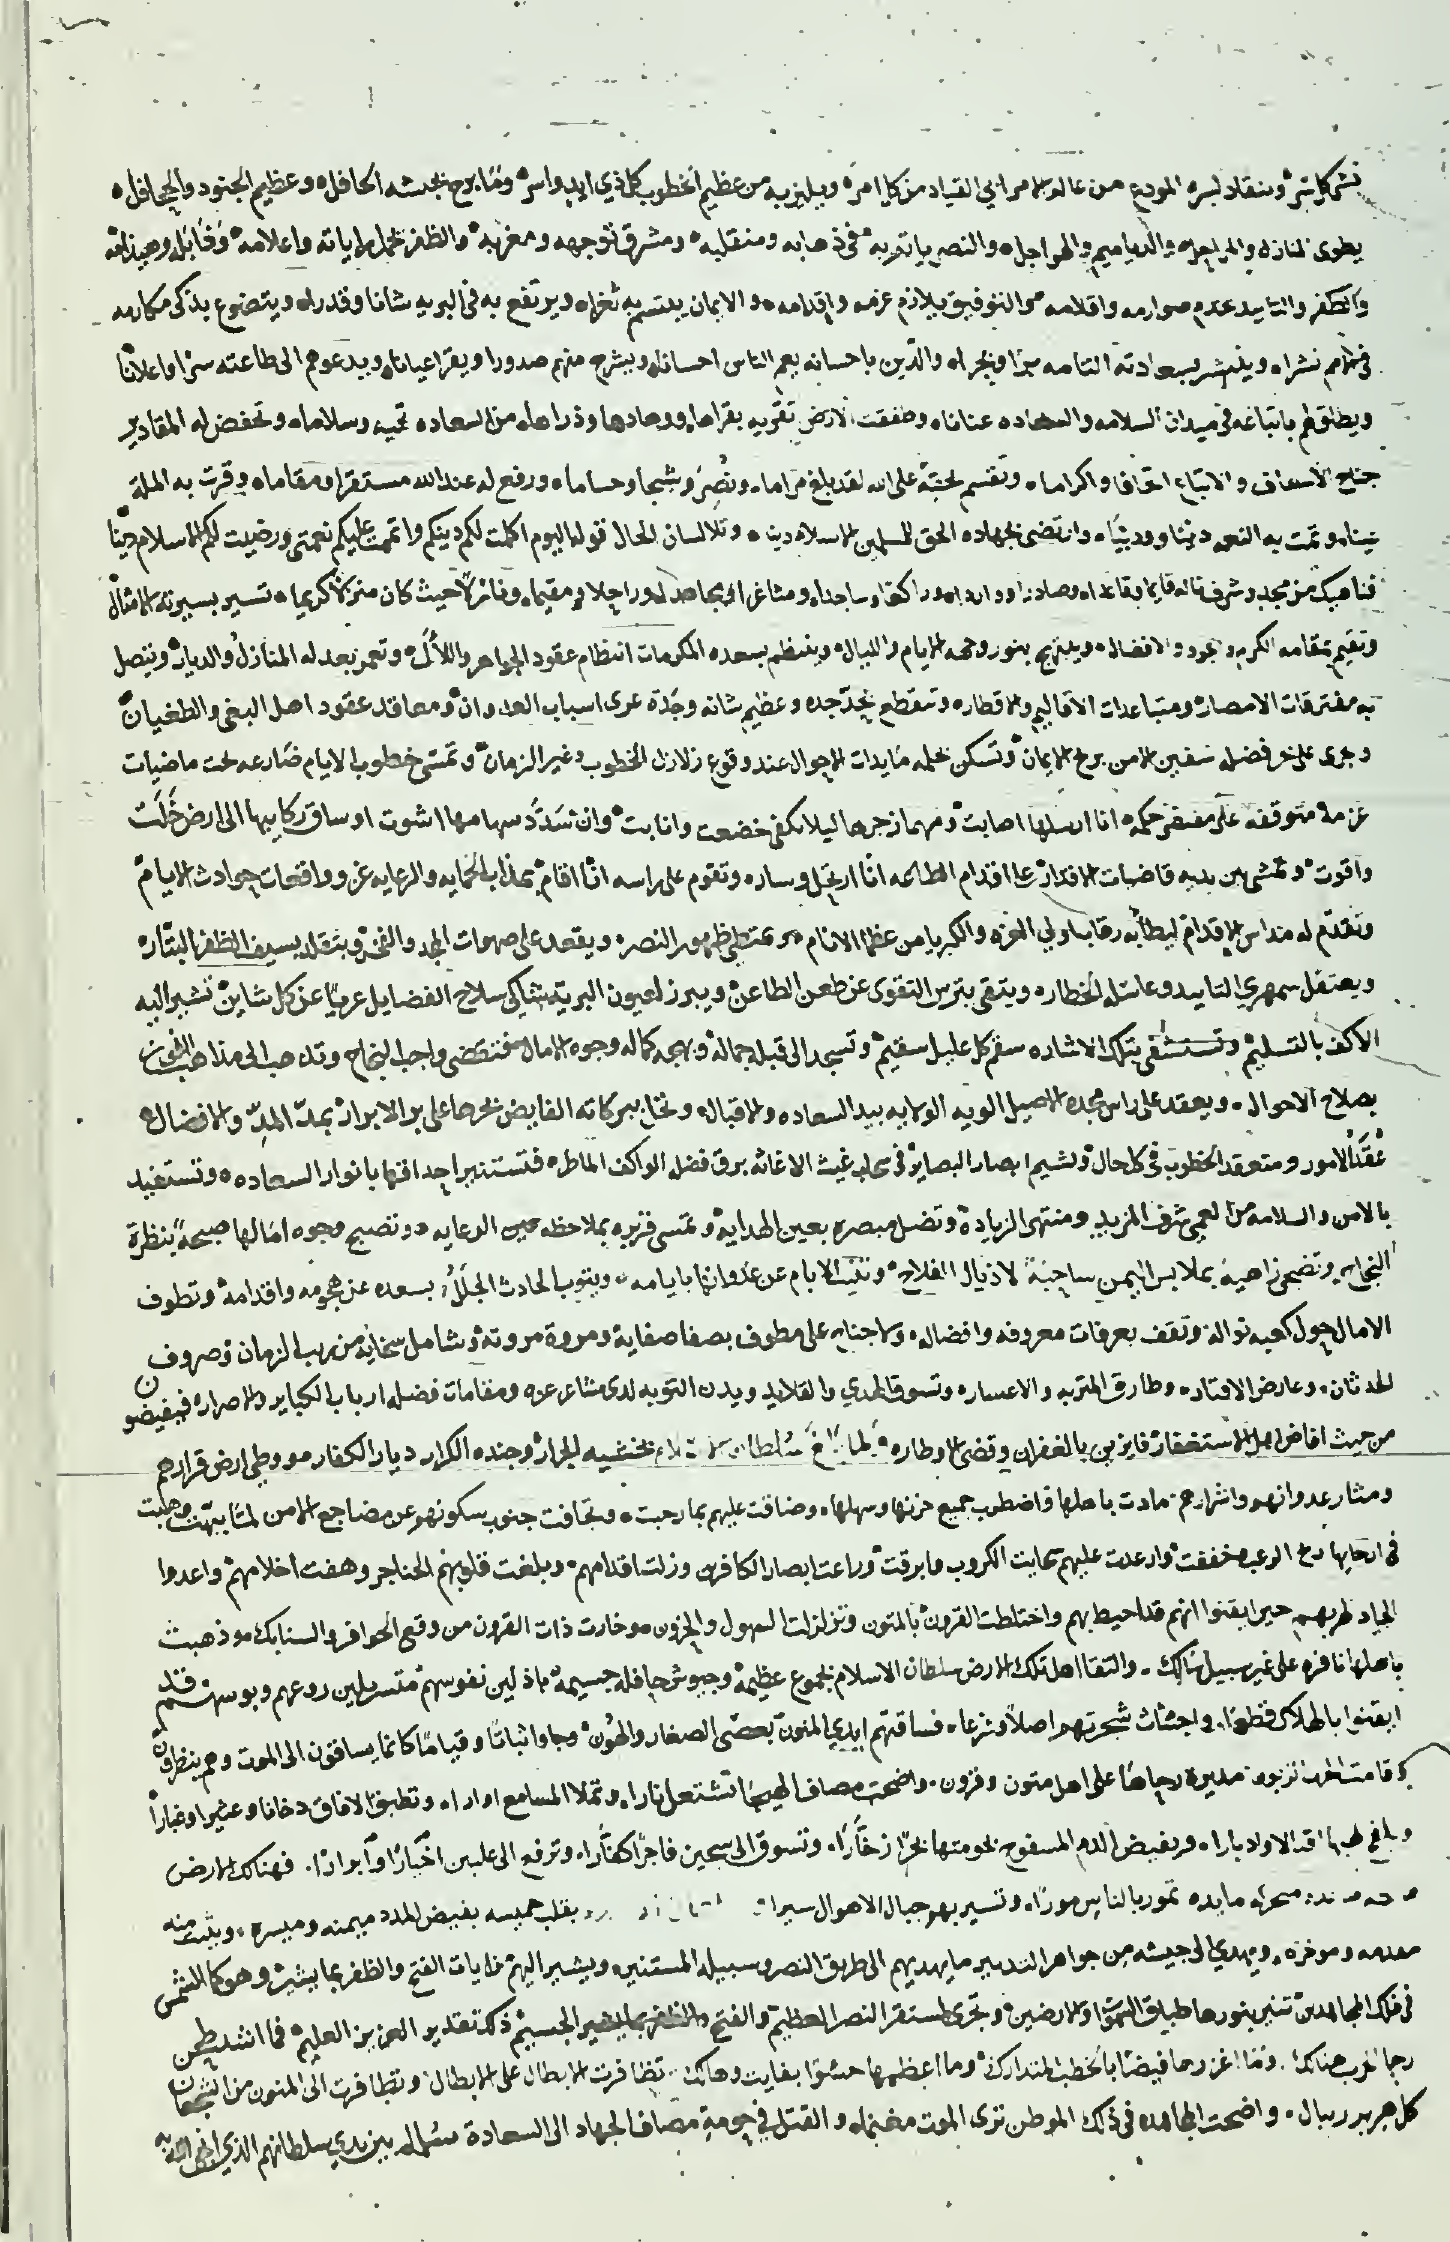 وينقاد لسره المودع من عالم الامر ابي القياد من كل امره ويلين به من عظيم الخطوب كل ذي ايد واسره وما برح بجيشه الحافل وعظيم الجنود والجحافل
يطوى المنازل والمراحل والدياميم والهواجل والنصر ياتم به في ذهابه ومنقلبه ومشرق توجهه ومغربه والظفر تحمل راياته واعلامه
والظفر والتاييد عدم صوارمه واقلامه والتوفيق يلازم عزمه واقدامه والايمان يبتسم به ثغرا ويرتفع به في البريه شانا وقدرا ويتضوع بذكى مكارمه
نشرا وينتشر بسعادته التامه برا وبحرا والدين باحسانه يعم الناس احسانا ويشرح منهم صدورا ويقر اعيانا ويدعوهم الى طاعته سرا واعلانا
ويطلق لهم باتباعه في ميدان السلامه والسعاده عنانا وطفقت الارض تقريه بقراها ووهادها وذراها من السعاده تحية وسلاما وتخفض له المقادير
جناح الاسعاف والاتباع اتحافا واكراما وتقسم بحقه على الله لقد بلغ مراما ونصر وشيجا وحساما ورفع له عند الله مستقرا ومقاما وقرت به الملة
عينا وتمت به النعمه دينا ودنيا وارتضى بجهاده الحق للمسلمين الاسلام دينا وتلا لسان الحال قوله اليوم اكملت لكم دينكم واتممت عليكم نعمتي ورضيت لكم الاسلام دينا
فناهيك من مجد وشرف ناله قايما وقاعدا وصادرا وواردا وراكعا وساجدا ومثاغرا ومجاهدا وراحلا ومقيما وفائزا حيث كان منزلا كريما تسير بسيرته الامثال
وتقيم بمقامه الكرم والجود والافضال ويبتهج بنور وجهه الايام والليال وينتظم بسعده المكرمات انتظام عقود الجواهر واللآل وتعمر بعدله المنازل والديار ويتصل
به مفترقات الامصار ومتباعدات الاقاليم والاقطار وتنقطع بحد جده وعظيم شانه وجده عرى اسباب العدوان ومعاقد عقود اهل البغي والطغيان
وجرى على بحر فضله سفين الامن بريح الايمان وتسكن بحلمه مايدات الاحوال عند وقوع زلازل الخطوب وغير الزمان وتمسى خطوب الايام ضارعه تحت ماضيات
عزمه متوقفه على مقتضى حكمه ان ارسلها اصابت ومهما زجرها ليلا تكفى خضعت وانابت وان سدد سهامها اشوت او ساق ركابيها الى ارض خلت
واقوت وتمشى بين يديه قاضيات الاقدار على اقدام الطاعه ان ارتحل وسار وتقوم على راسه ان اقام بمذاب الحمايه والرعايه عن واقعات حوادث الايام
وتقدم له مداس الاقدام ليطأ به رقاب اولي العزه والكبريا من عظما الانام ويمتطى ظهور النصر ويقعد على صهوات المجد والفخر ويتقلد بسيف الظفر البتار
ويعتقل سمهري التاييد وعاسله الخطار ويتقى بترس التقوى عن طعن الطاعن ويبرز لعيون البرية شاكي سلاح الفضايل عريا عن كل شاين تشير اليه
الاكف بالتسليم وتستشفى بتلك الاشاره سقم كل عليل سقيم وتسجد الى قبلة جماله وبهجه كماله وجوه الامال فتقتضى واجب النجاح وتذهب الى مذاهب
بصلاح الاحوال ويعقد على راس مجده الاصيل الويه الولايه بيد السعاده والاقبال وتحل ببركاته الفايض بحرها على بر الابرار بمد المد والافضال
عقد الامور ومتعقد الخطوب في كل حال وتشيم ابصار البصاير في سحاب غيث الاغاثه برق فضله الواكف الماطر فتستنير احداقها بانوار السعاده وتستفيد
بالامن والسلامة من العمى شرف المزيد ومنتهى الزياده وتضل مبصره بعين الهدايه وتمسى قريره بملاحظه عين الرعايه وتصبح وجوه امالها صبيحة بنظرة
النجاح وتضحى زاهيه بملابس اليمن ساحبة لاذيال الفلاح وتثنى الايام عن عدوانها بايامه ويتوب الحادث الجلل بسعده عن هجومه واقدامه وتطوف
الامال حول كعبه نواله وتقف بعرفات معروفه وافضاله ولا جناح على مطوف بصفا صفايه ومروة مروته وشامل سخايه من ريب الزمان وصروف
الحدثان وعارض الاقتار وطارق المتربه والاعسار وتسوق الهدي والقلايد وبدن التوبه لدى مشاعر عزه ومقامات فضله ارباب الكباير والاصرار فيفيضون
من حيث افاض اهل الاستغفار فايزين بالغفران وقضى الاوطار ولما بلغ سلطان الاسلام بخميسه الجرار وجنده الكرار ديار الكفار ووطي ارض قرارهم
ومثار عدوانهم واشرارهم مادت باهلها واضطرب جميع حزنها وسهلها وضاقت عليهم بما رحبت وتجافت جنوب سكونهم عن مضاجع الامن
في ارجايها ريح الرعب وخفقت وارعدت عليهم سحايب الكروب وابرقت وراعت ابصار الكافرين وزلت اقدامهم وبلغت قلوبهم الحناجر وهفت احلامهم واعدوا
الجياد لحربهم حين ايقنوا انهم قد احيط بهم واختلطت القرون بالمتون وتزلزلت السهول والحزون وخارت ذات القرون من وقع الحوافر والسنابك وذهبت
باهلها نافره على غير سبيل سالك والتقا اهل تلك الارض سلطان الاسلام بجموع عظيمة وجيوش حافله جسيمة باذلين نفوسهم متسربلين روعهم وبوسهم قد
ايقنوا بالهلاك قطعا واجتثاث شجرتهم اصلا وفرعا فساقتهم ايدي المنون بعصى الصغار والهون وجاوا ثباتا وقياما كانما يساقون الى الموت وهم ينظرون
وقامت الحرب الزبون مديرة رحاها على اهل متون وقرون واضحت مصاف الهيجا تشتعل نارا وتملا المسامع اوارا وتطبق الافاق دخانا وعثيرا وغبارا
ويفيض الدم المسفوح بحومتها بحرا زخارا وتسوق الى سجين فاجرا كفارا وترفع الى عليين اخيارا وابرارا فهنالك الارض
مايده تمور بالناس مورا وتسير بهم جبال الاهوال سيرا يقلب خميسه بفيض المدد ميمنه وميسره ويثبت منه
مقدمه وموخره ويهدي الى جيشه من جواهر التدبير ما يهديهم الى طريق النصر وسبيله المستنير ويشير اليهم من ايات الفتح والظفر بما يبشر وهو كالشمس
في فلك المجاهدين تنير بنورها طباق السموات والارضين وتجرى لمستقر النصر العظيم والفتح والظفر الجسيم ذلك تقدير العزيز العليم فما اشد طحن
رحا الحرب هنالك وما اغزرها فيضا بالخطب المتدارك وما اعظمها حشوا بفايت وهالك تظافرت الابطال على الابطال وتظافرت الى المنون من الشجعان
كل هزبر ريبال واضحت المجاهده في ذلك الموطن ترى الموت مغنما والقتل في حومة مصاف الجهاد الى السعادة سلما بين يدي سلطانهم الذي